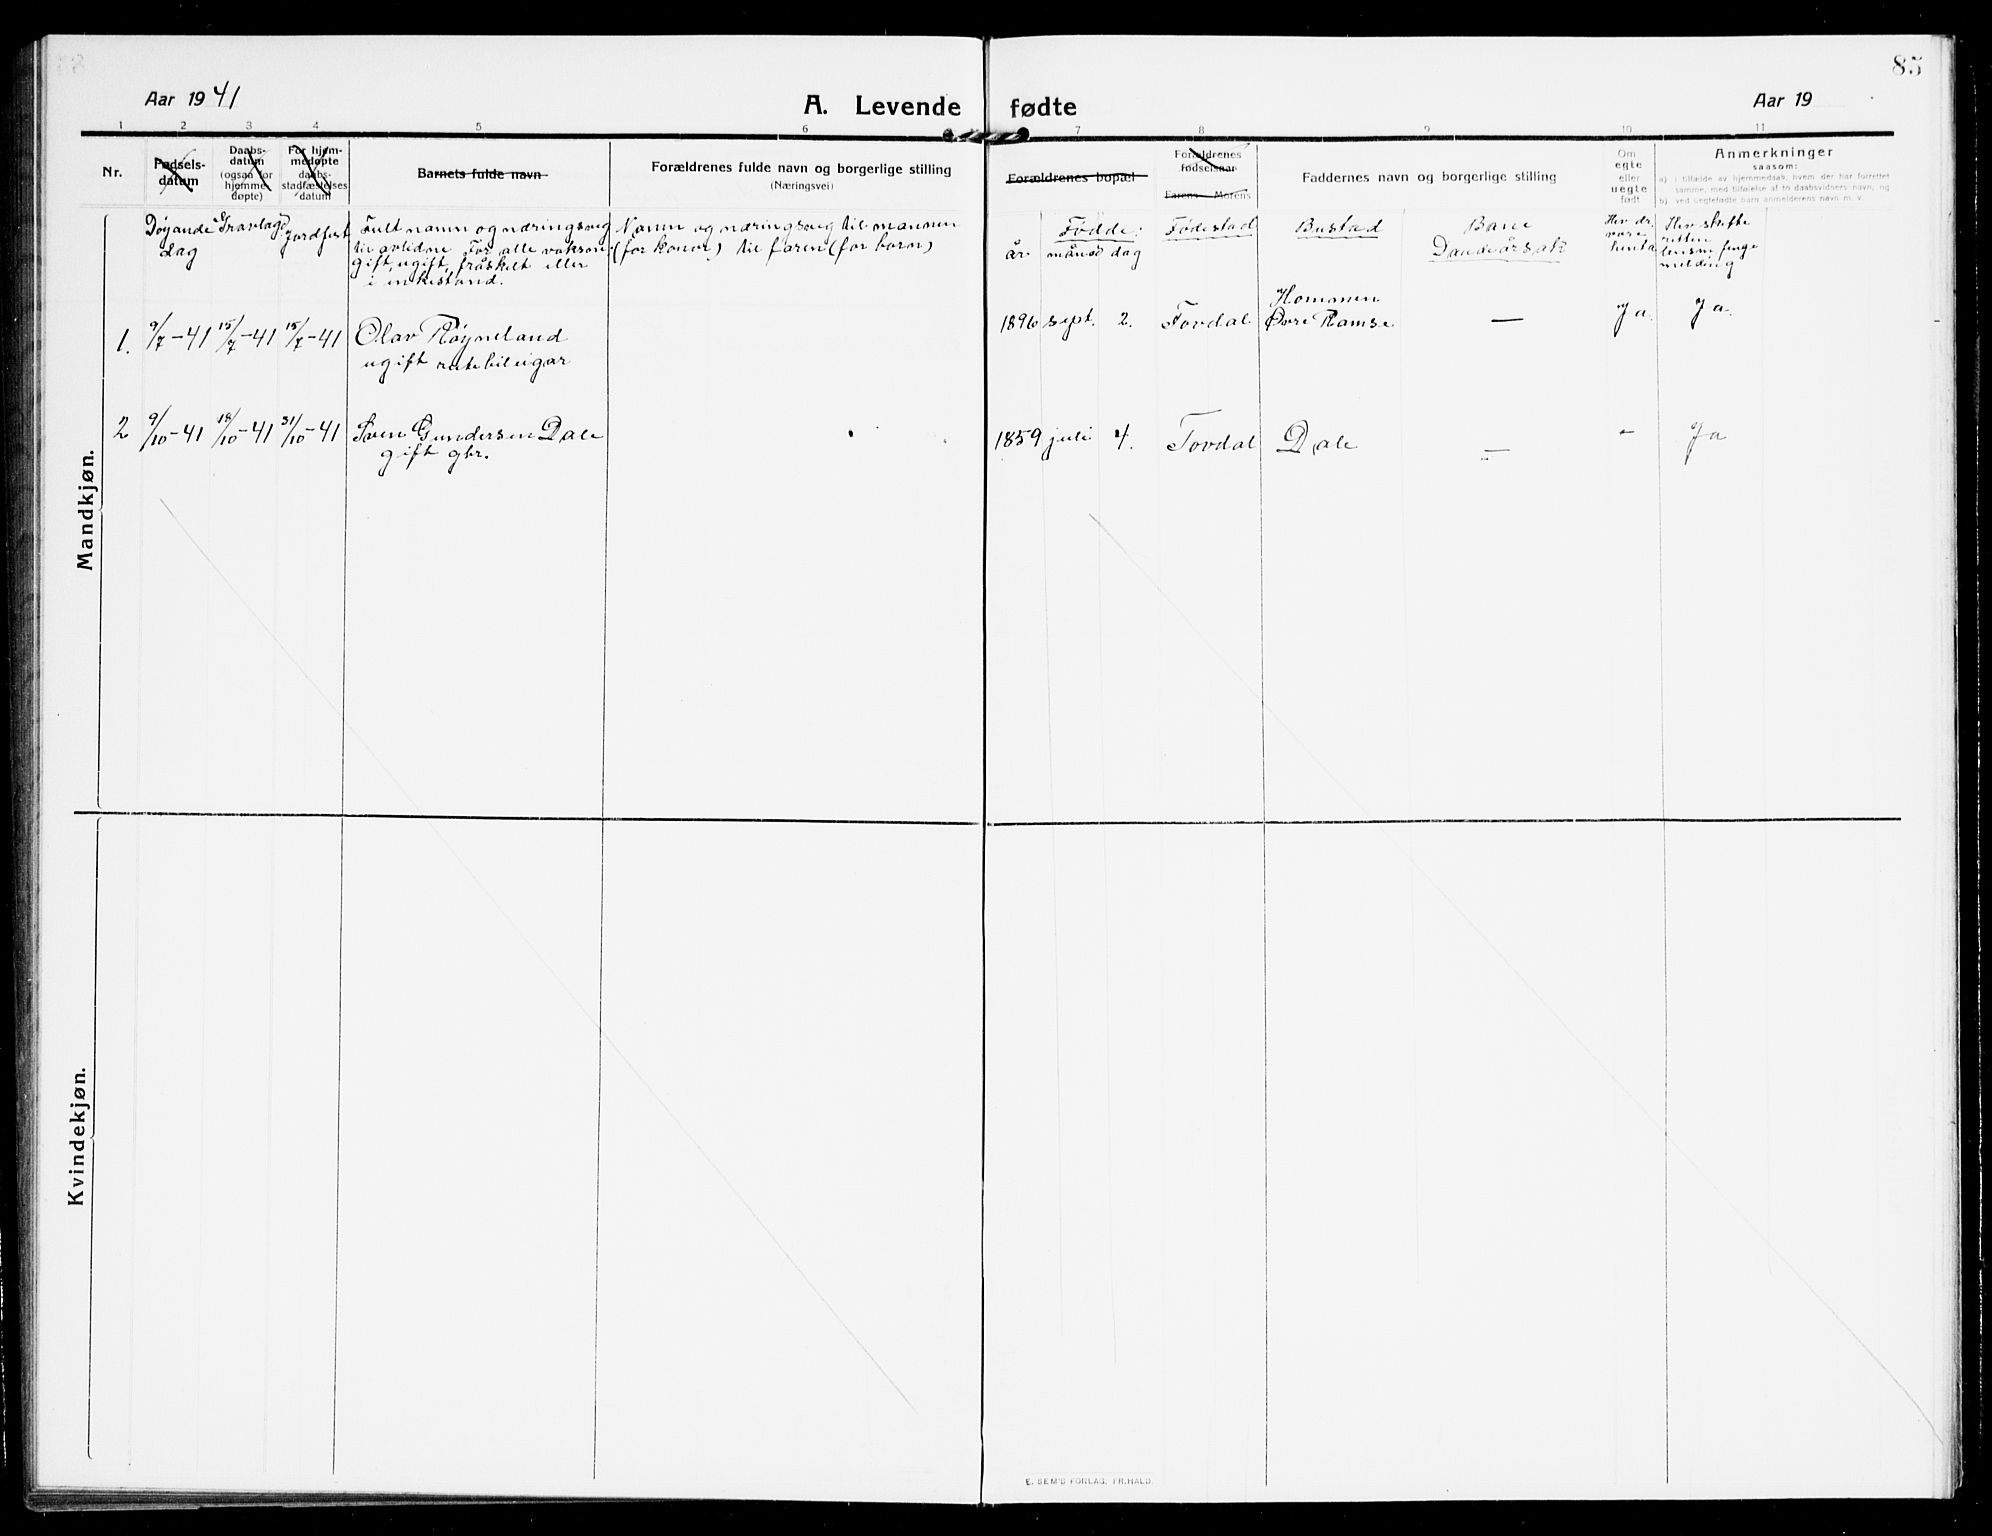 85
Aar 1941
A. Levende fødte
Aar 19
1 2 3 4 5 6 7 8 9 10 11
Nr.
Fødsels-
datum
Daabs-
datum
(ogsaa for
hjemme
døpte)
For hjem-
medøpte
daabs-
stadfæstelses
datum
Barnets fulde navn
Forældrenes fulde navn og borgerlige stilling
(Næringsvei)
Forældrenes bopæl
Forældrenes
fødselsaar
Farens Morens
Faddernes navn og borgerlige stilling
Om
egte
eller
uegte
født
Anmerkninger
saasom:
a) i tilfælde av hjemmedaab, hvem der har forrettet
samme, med tilføielse af to daabsvidners navn, og
b) ved uegtefødte barn anmelderens navn m. v.
Døyande
dag
Gravlagd
Jordfest
Fult namn og næringsveg
til avlidne For alle voksne
gift, ugift, fråskilt eller
i enkestand.
Namn og næringsveg til mannen
(for konor) til faren (for born)
Fødde:
år månad dag
Fødestad
Bustad
Bane
Daudeårsak
Hev dr.
vore
henta
Hev skifte
retten
lensm. fenge
melding
1. 9/7-41 15/7-41 15/7-41 Olav Røyneland
ugift rutebileigar
1896 sept. 2. Tovdal
Hommen
Øvre Ramse
— Ja. Ja.
2 9/10-41 18/10-41 31/10-41 Sven Gundersen Dale
gift gbr.
1859 juli 4. Tovdal Dale — - Ja
Mandkjøn.
Kvindekjøn.
E. SEM'S FORLAG, FR.HALD.